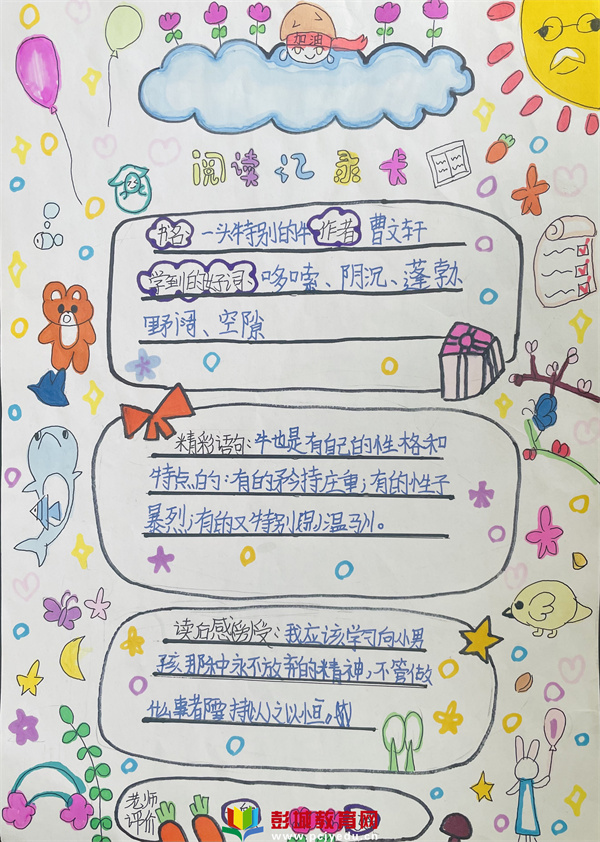 加油
阅读记录卡
书名 一头特别的牛 作者 曹文轩
学到的好词: 哆嗦、阴沉、蓬勃
野阔、空隙
精彩语句:牛也是有自己的性格和
特点的:有的矜持庄重;有的性子
暴烈;有的又特别温驯。
读后感受:我应该学习向小男
孩那种永不放弃的精神,不管做
什么事都要持之以恒。
老师
评价
彭城教育网
www.pcjyedu.cn